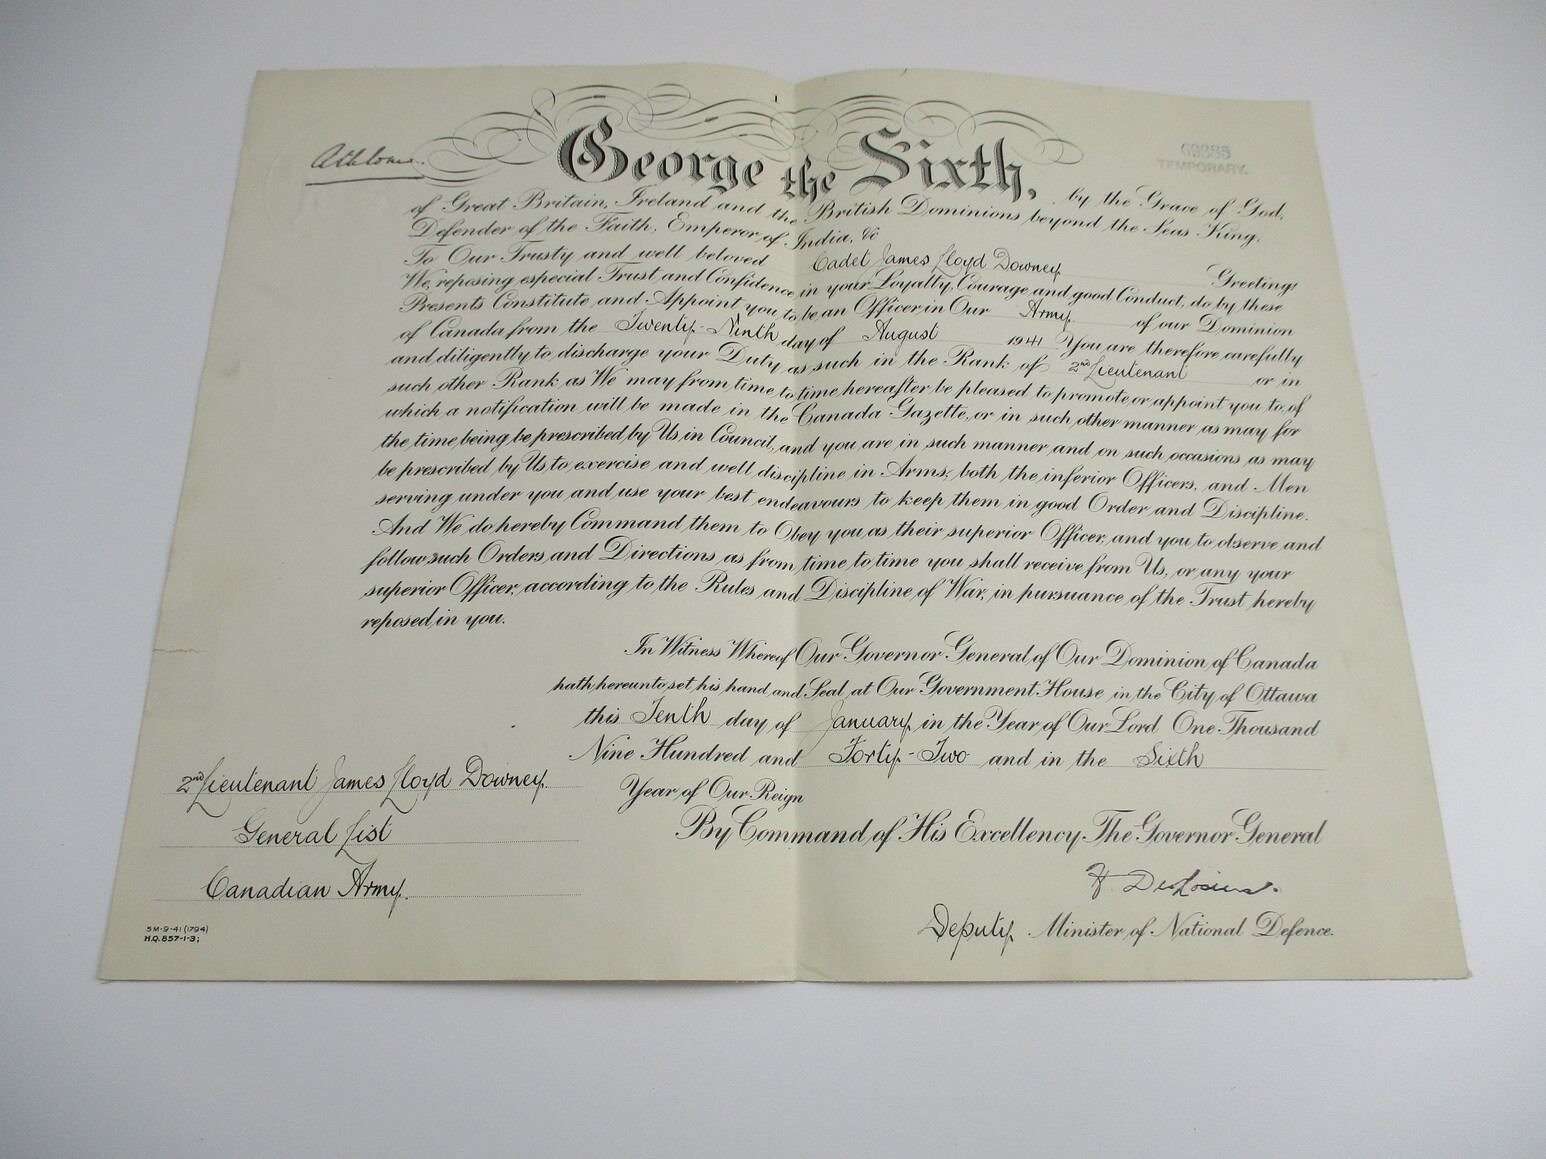 Athlone.
George the Sixth,
TEMPORARY.
by the Grace of God,
of Great Britain, Ireland and the British Dominions beyond the Seas King,
Defender of the Faith, Emperor of India, &c
To Our Trusty and well beloved Cadet James Lloyd Downey Greeting:
We, reposing especial Trust and Confidence, in your Loyalty, Courage and good Conduct, do by these
Presents Constitute and Appoint you to be an Officer in Our Army of our Dominion
of Canada from the Twenty-Ninth day of August 1941 You are therefore carefully
and diligently to discharge your Duty as such in the Rank of 2nd Lieutenant or in
such other Rank as We may from time to time hereafter be pleased to promote or appoint you to, of
which a notification will be made in the Canada Gazette, or in such other manner as may for
the time being be prescribed by Us in Council, and you are in such manner and on such occasions as may
be prescribed by Us, to exercise and well discipline in Arms, both the inferior Officers, and Men
serving under you and use your best endeavours to keep them in good Order and Discipline.
And We do hereby Command them to Obey you, as their superior Officer, and you to observe and
follow such Orders and Directions, as from time to time you shall receive from Us, or any your
superior Officer, according to the Rules and Discipline of War, in pursuance of the Trust hereby
reposed in you.
In Witness Whereof Our Governor General of Our Dominion of Canada
hath hereunto set his hand and Seal at Our Government House in the City of Ottawa
this Tenth day of January in the Year of Our Lord One Thousand
Nine Hundred and Forty-Two and in the Sixth
Year of Our Reign
By Command of His Excellency The Governor General
2nd Lieutenant James Lloyd Downey.
General List
Canadian Army.
H. DesRosiers.
Deputy Minister of National Defence.
5M-9-41 (1794)
H.Q. 857-1-3;